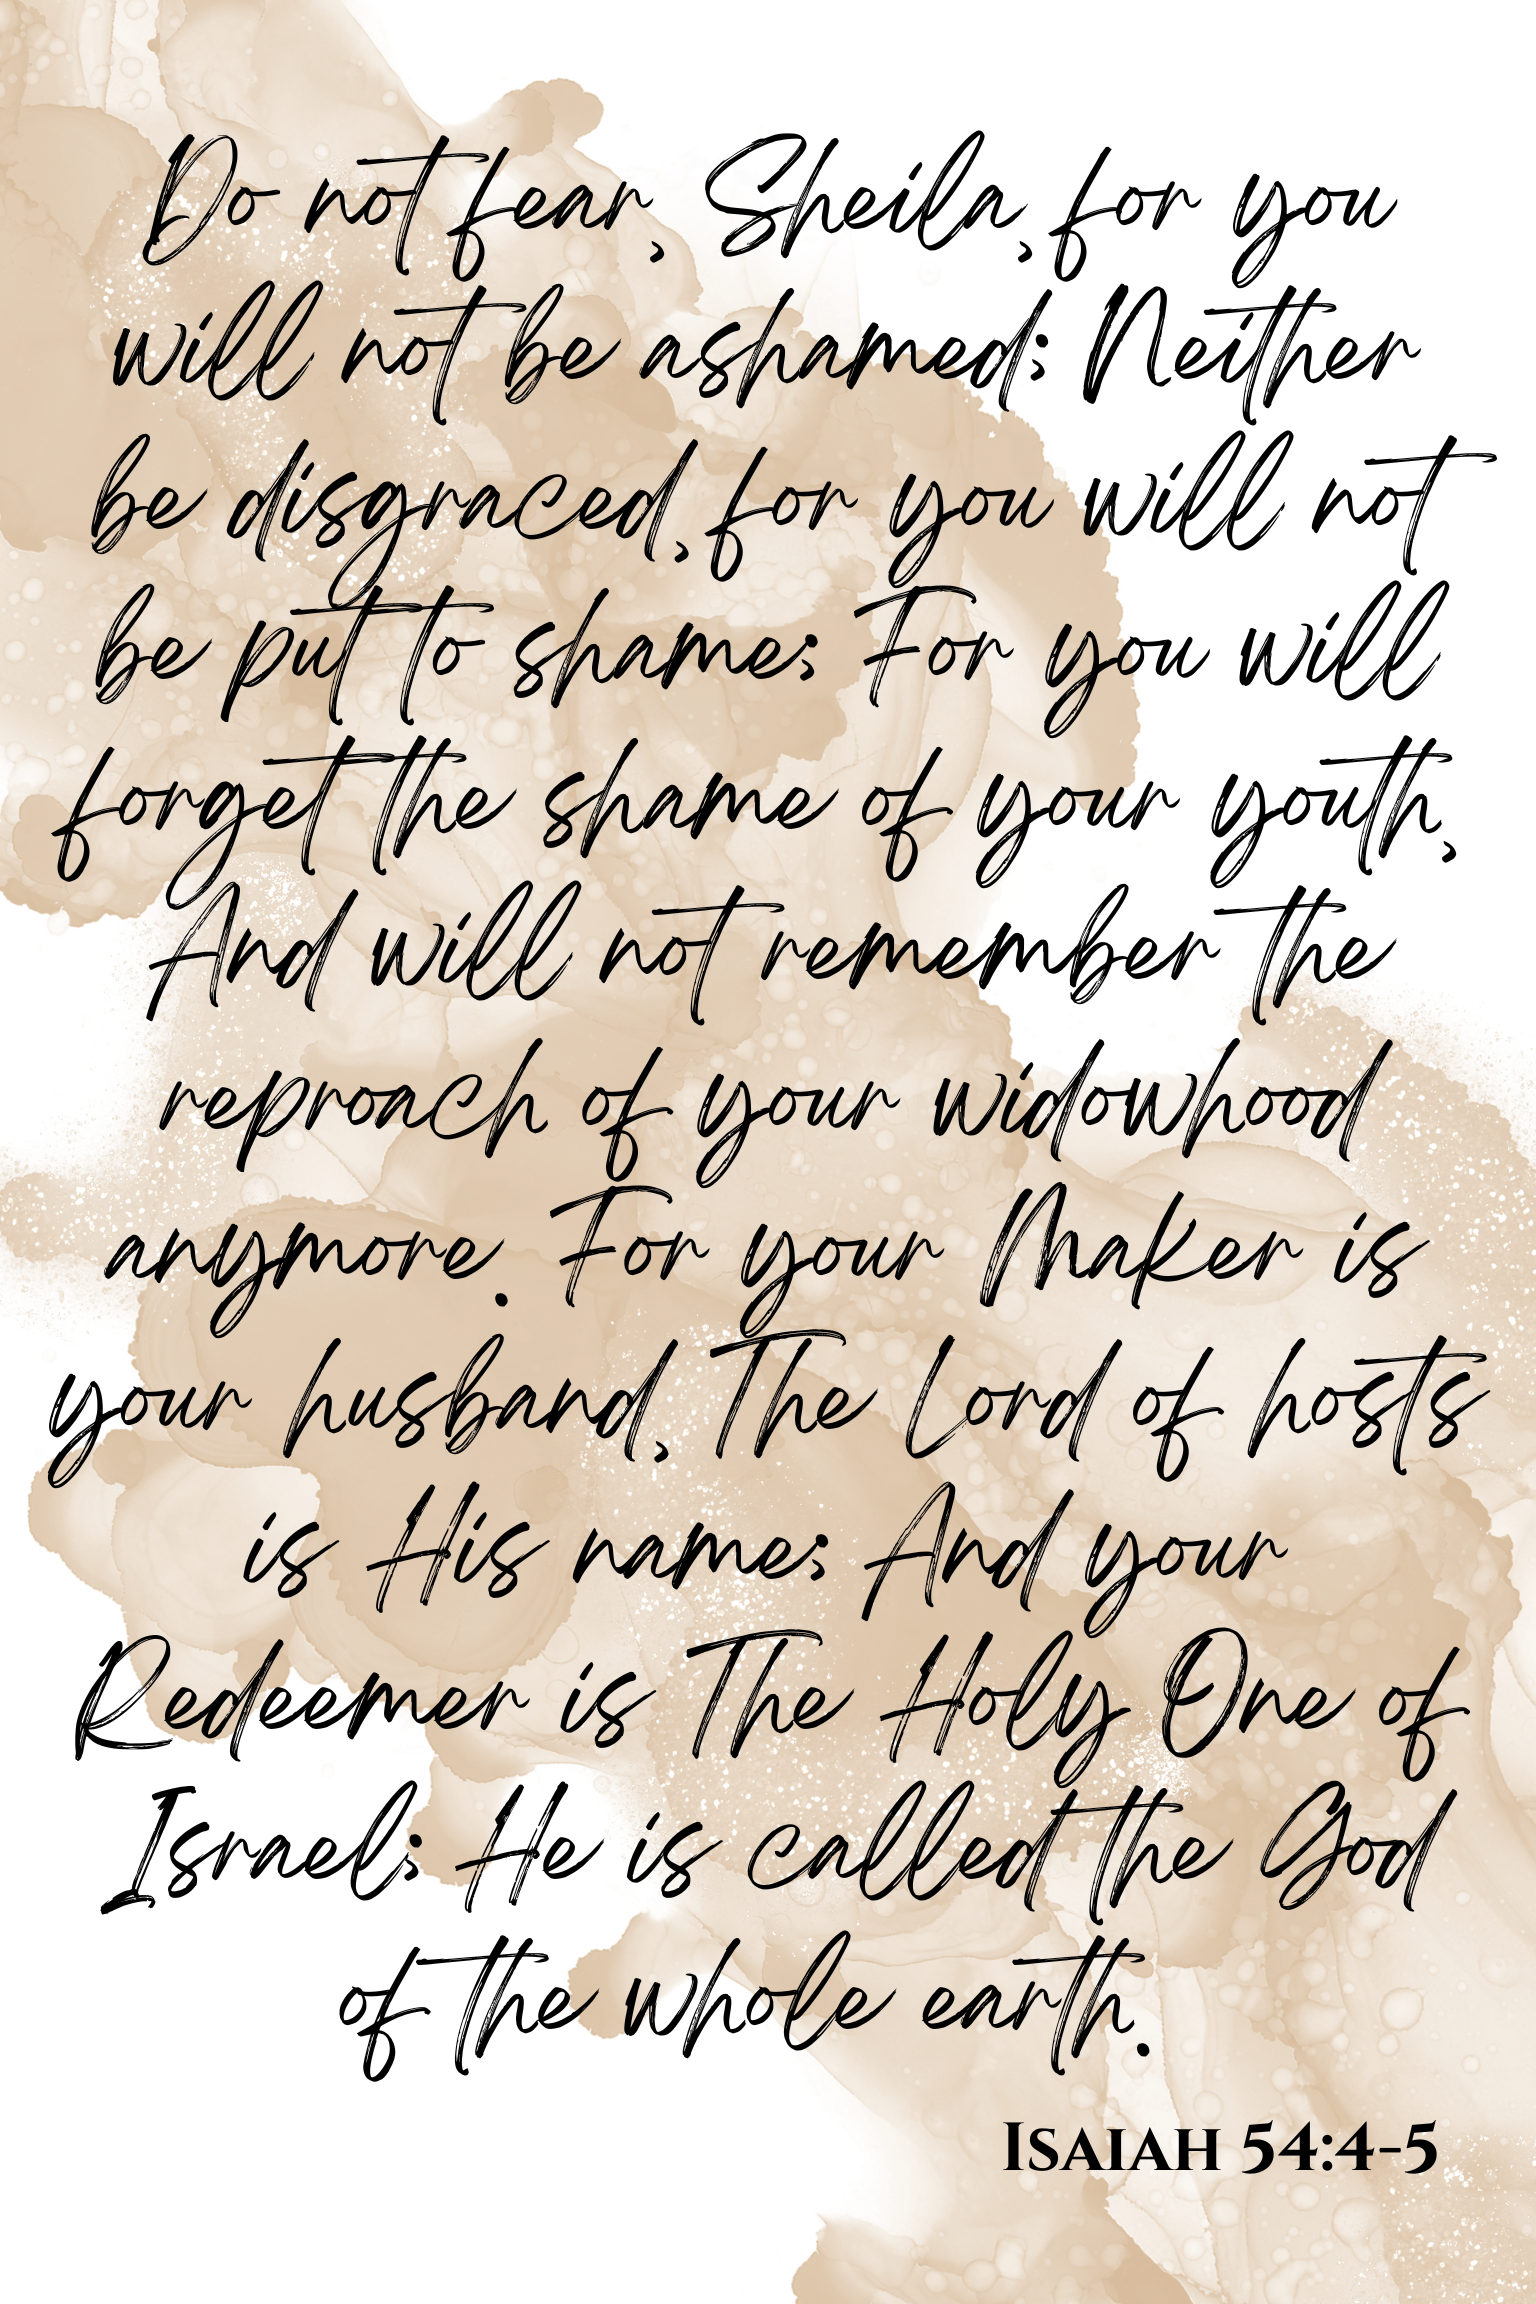 Do not fear, Sheila, for you
will not be ashamed; Neither
be disgraced, for you will not
be put to shame; For you will
forget the shame of your youth,
And will not remember the
reproach of your widowhood
anymore. For your Maker is
your husband, The Lord of hosts
is His name; And your
Redeemer is The Holy One of
Israel; He is called the God
of the whole earth.
Isaiah 54:4-5